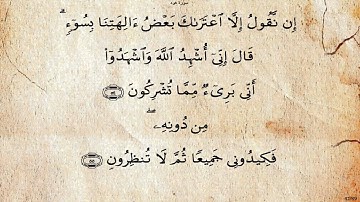 سورة هود
إِن نَّقُولُ إِلَّا ٱعۡتَرَىٰكَ بَعۡضُ ءَالِهَتِنَا بِسُوٓءٖۗ
قَالَ إِنِّيٓ أُشۡهِدُ ٱللَّهَ وَٱشۡهَدُوٓاْ
أَنِّي بَرِيٓءٞ مِّمَّا تُشۡرِكُونَ ٥٤
مِن دُونِهِۦۖ
فَكِيدُونِي جَمِيعٗا ثُمَّ لَا تُنظِرُونِ ٥٥